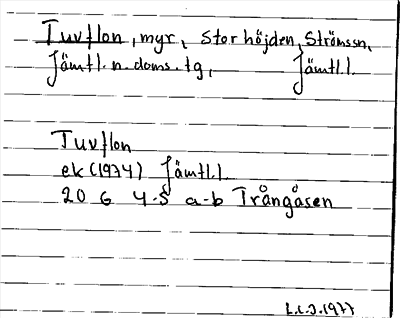 Tuvflon, myr, Storhöjden, Strömssn,
Jämtl. n. doms. tg, Jämtl.l.
Tuvflon
ek (1974) Jämtl.l.
20 G 4-5 a-b Trångåsen
L.C.J. 1977